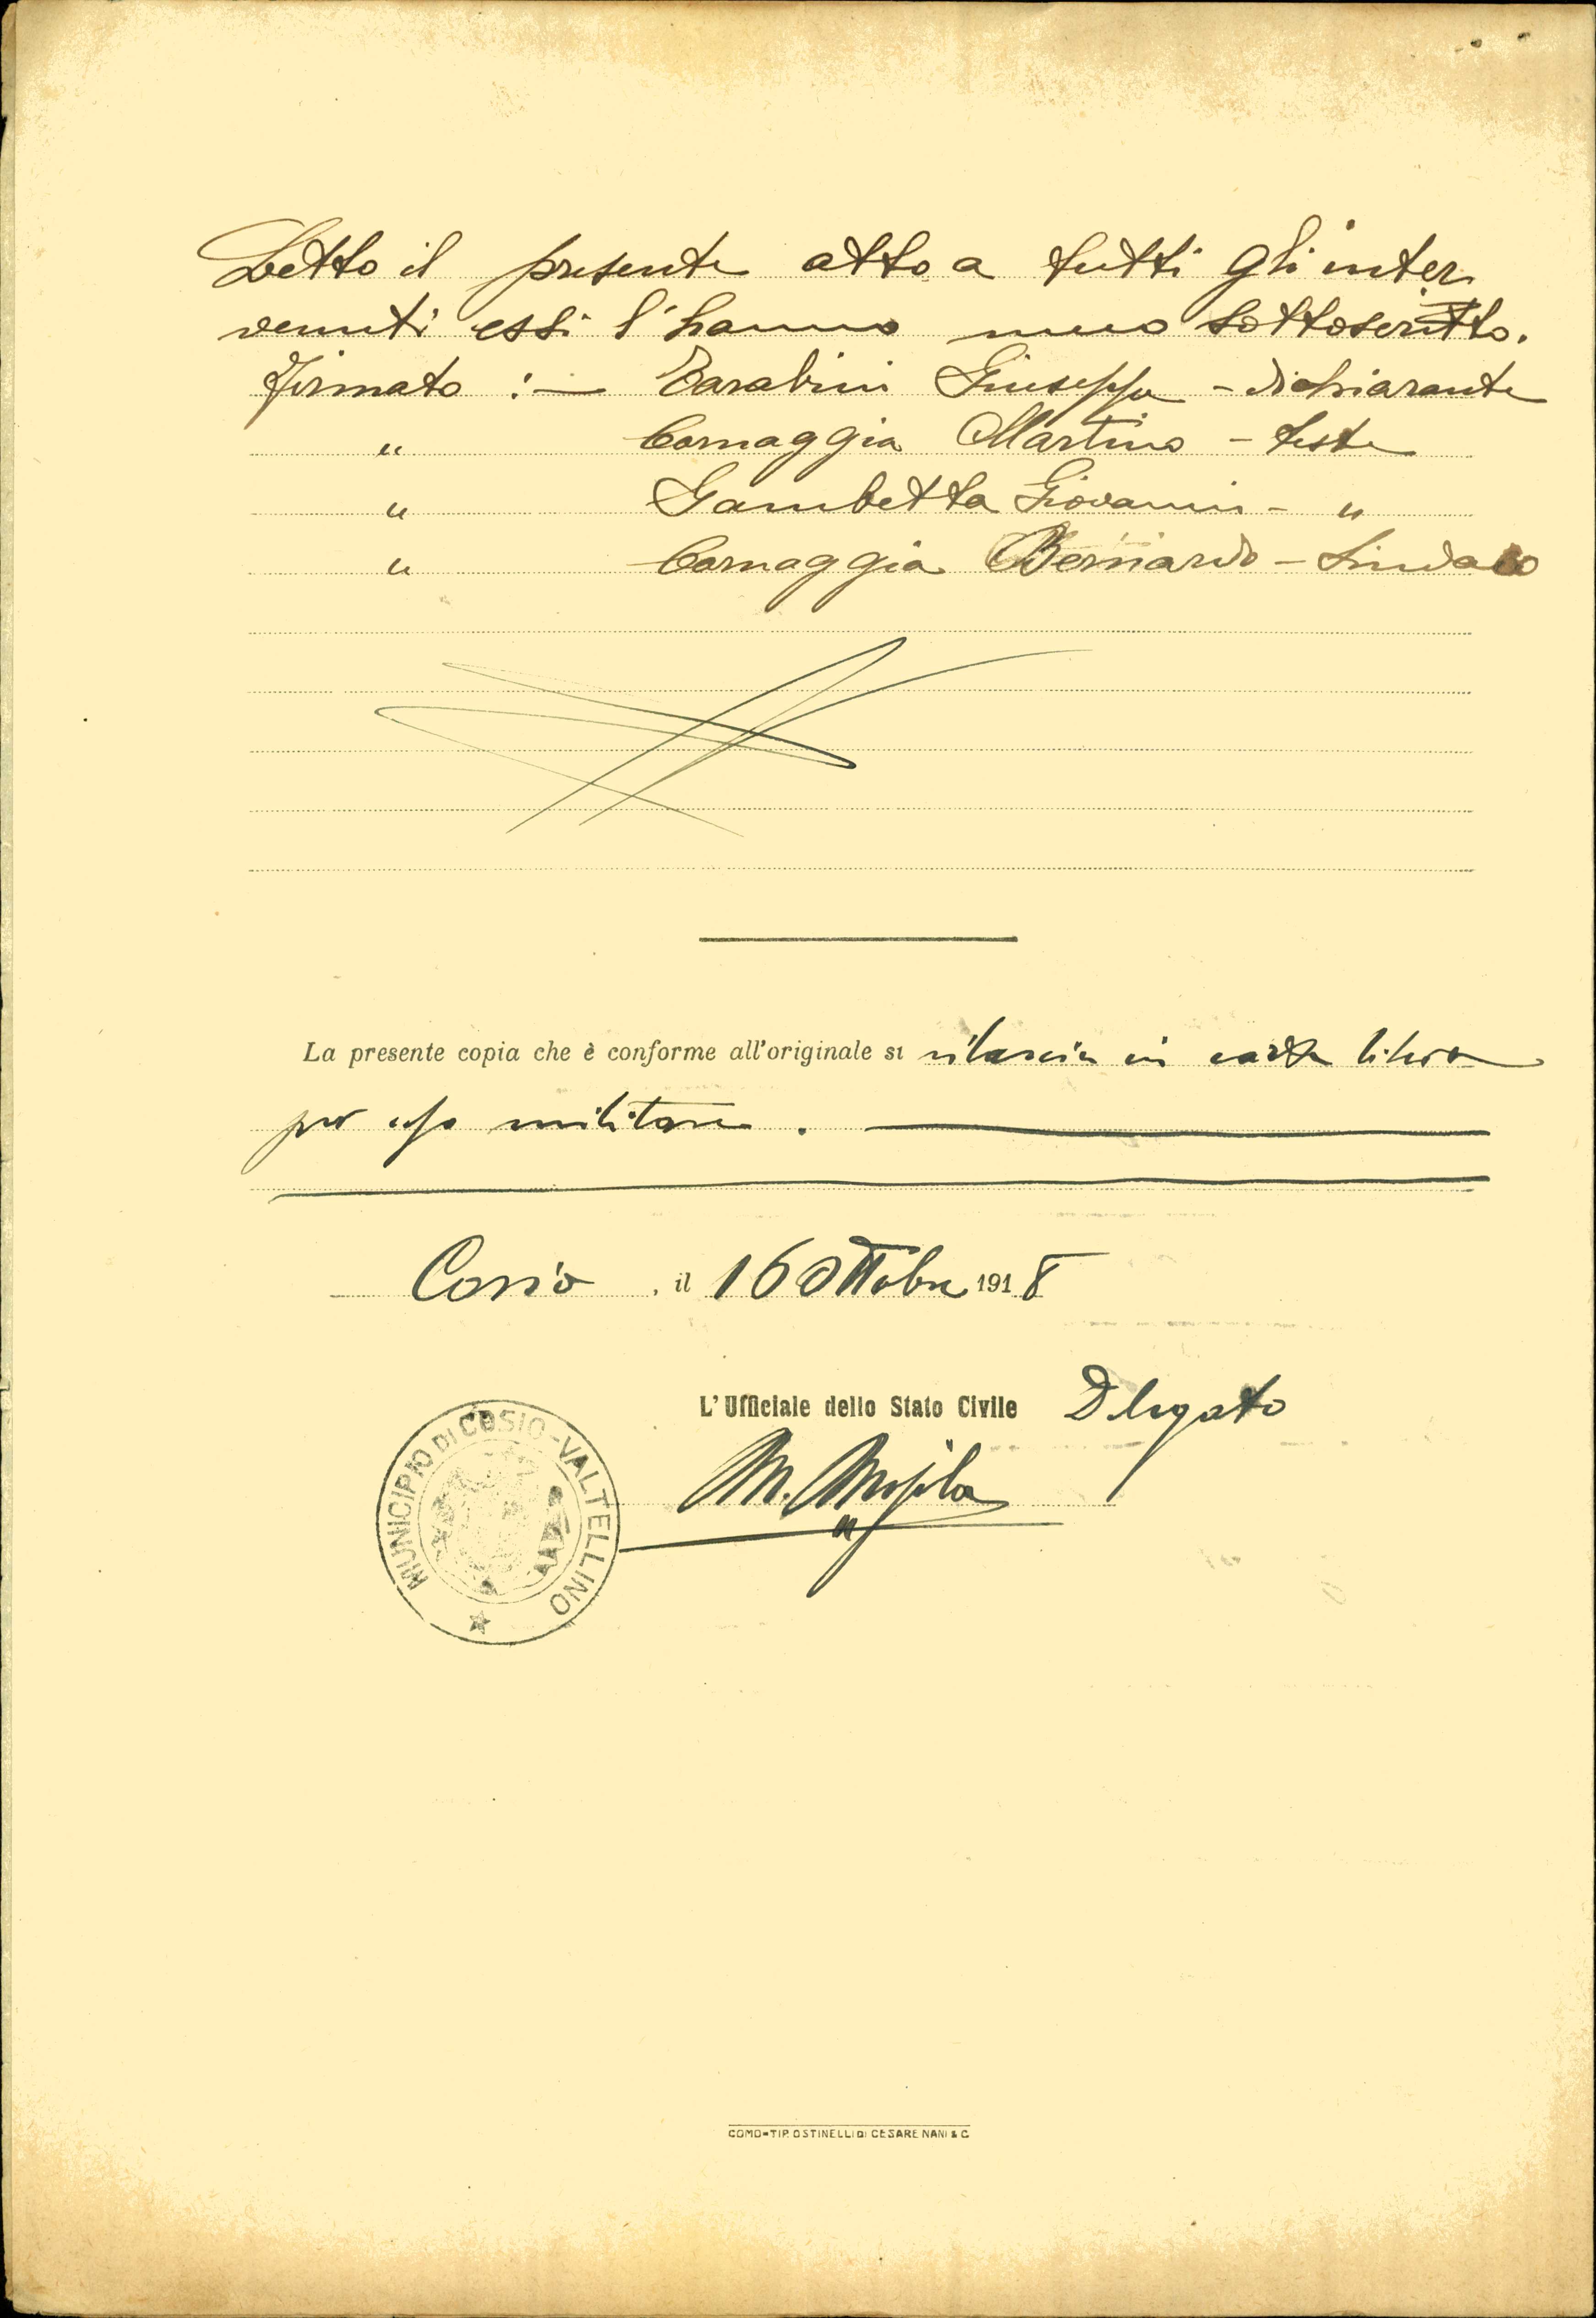 Letto il presente atto a tutti gli inter
venuti essi l'hanno meco sottoscritto.
Firmato :— Tarabini Giuseppe - dichiarante
" Cornaggia Martino - teste
" Gambetta Giovanni - "
" Cornaggia Bernardo - Sindaco
La presente copia che è conforme all'originale si rilascia in carta libera
per uso militare.
Cosio, il 16 Ottobre 1918
L'Ufficiale dello Stato Civile Delegato
M.
MUNICIPIO DI COSIO-VALTELLINO
COMO-TIP. OSTINELLI DI CESARE NANI & C